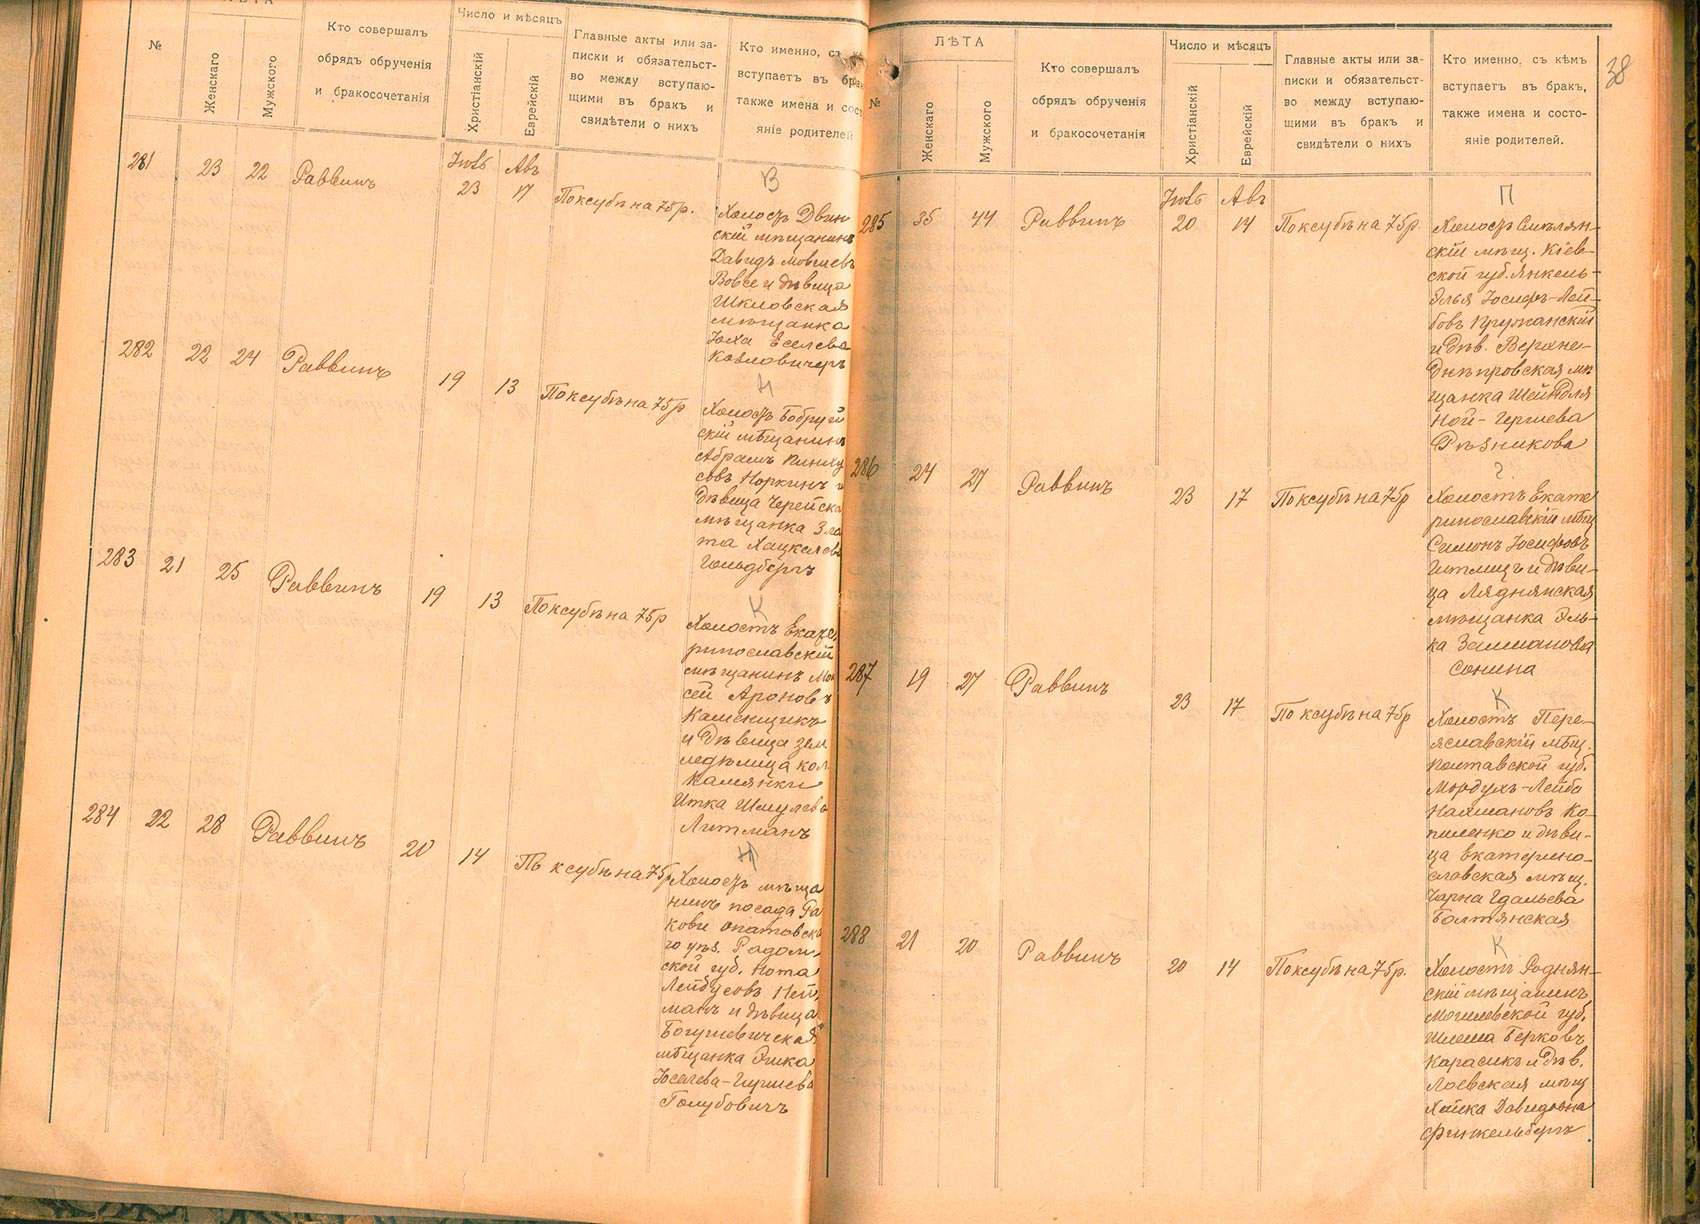 ЛѢТА
Число и мѣсяцъ
№
Женскаго
Мужского
Кто совершалъ
обрядъ обрученія
и бракосочетанія
Христіанскій
Еврейскій
Главные акты или за-
писки и обязательст-
во между вступаю-
щими въ бракъ и
свидѣтели о нихъ
Кто именно, съ
вступаетъ въ брак
также имена и сост
яніе родителей
Іюль Авъ
281 23 22 Раввинъ 23 17 По ксубѣ на 75 р.
В
Холостъ Двин
скій мѣщанинъ
Давидъ Мовшевъ
Вовсе и дѣвица
Шкловская
мѣщанка
Еселева
Козловичеръ
282 22 24 Раввинъ 19 13 По ксубѣ на 75 р
Н
Холостъ Бобруй
скій мѣщанинъ
Абрамъ Пинху
совъ Норкинъ и
дѣвица Черейска
мѣщанка Зла
та Хацкелева
Гольдбергъ
283 21 25 Раввинъ 19 13 По ксубѣ на 75 р
К
Холостъ Екате
ринославскій
мѣщанинъ Мои
сей Ароновъ
Каменщикъ
и дѣвица зем
ледѣлица кол.
Камянки
Итка Шмулева
Литманъ
284 22 28 Раввинъ 20 14 Пъ ксубѣ на 75 р
Н
Холостъ мѣща
нинъ посада Ра
кови Опатовска
го уѣз. Радом
ской губ. Нота
Лейбусовъ Ней
манъ и дѣвица
Богушевическая
мѣщанка Эшка
Іоселева-Гиршева
Голубовичъ
38
ЛѢТА
Число и мѣсяцъ
№
Женскаго
Мужского
Кто совершалъ
обрядъ обрученія
и бракосочетанія
Христіанскій
Еврейскій
Главные акты или за-
писки и обязательст-
во между вступаю-
щими въ бракъ и
свидѣтели о нихъ
Кто именно, съ кѣмъ
вступаетъ въ бракъ,
также имена и состо-
яніе родителей.
Іюль Авъ
285 35 44 Раввинъ 20 14 По ксубѣ на 75 р.
П
Холостъ Смѣлян-
скій мѣщ. Кіев-
ской губ. Янкель-
Элья Іосифъ-Лей-
бовъ
и дѣв. Верхне-
днѣпровская мѣ
щанка Шейндля
Ной-Гершева
Рѣзникова
286 24 27 Раввинъ 23 17 По ксубѣ на 75 р
?
Холостъ Екате
ринославскій мѣщ
Симонъ Іосифовъ
Гитлицъ и дѣви-
ца Ляднянская
мѣщанка Эль-
ка Залманова
Сонина
287 19 27 Раввинъ 23 17 По ксубѣ на 75 р
К
Холостъ Пере-
яславскій мѣщ.
Полтавской губ.
Мордухъ-Лейба
Нахмановъ Ко-
пиленко и дѣви-
ца Екатерино-
славская мѣщ.
Чарна Гдальева
Балтянская
288 21 20 Раввинъ 20 14 По ксубѣ на 75 р.
К
Холостъ Роднян-
скій мѣщанинъ
Могилевской губ.
Шлема Берковъ
Карасикъ и дѣв.
Лоевская мѣщ
Хайка Давидовна
Финкельбергъ